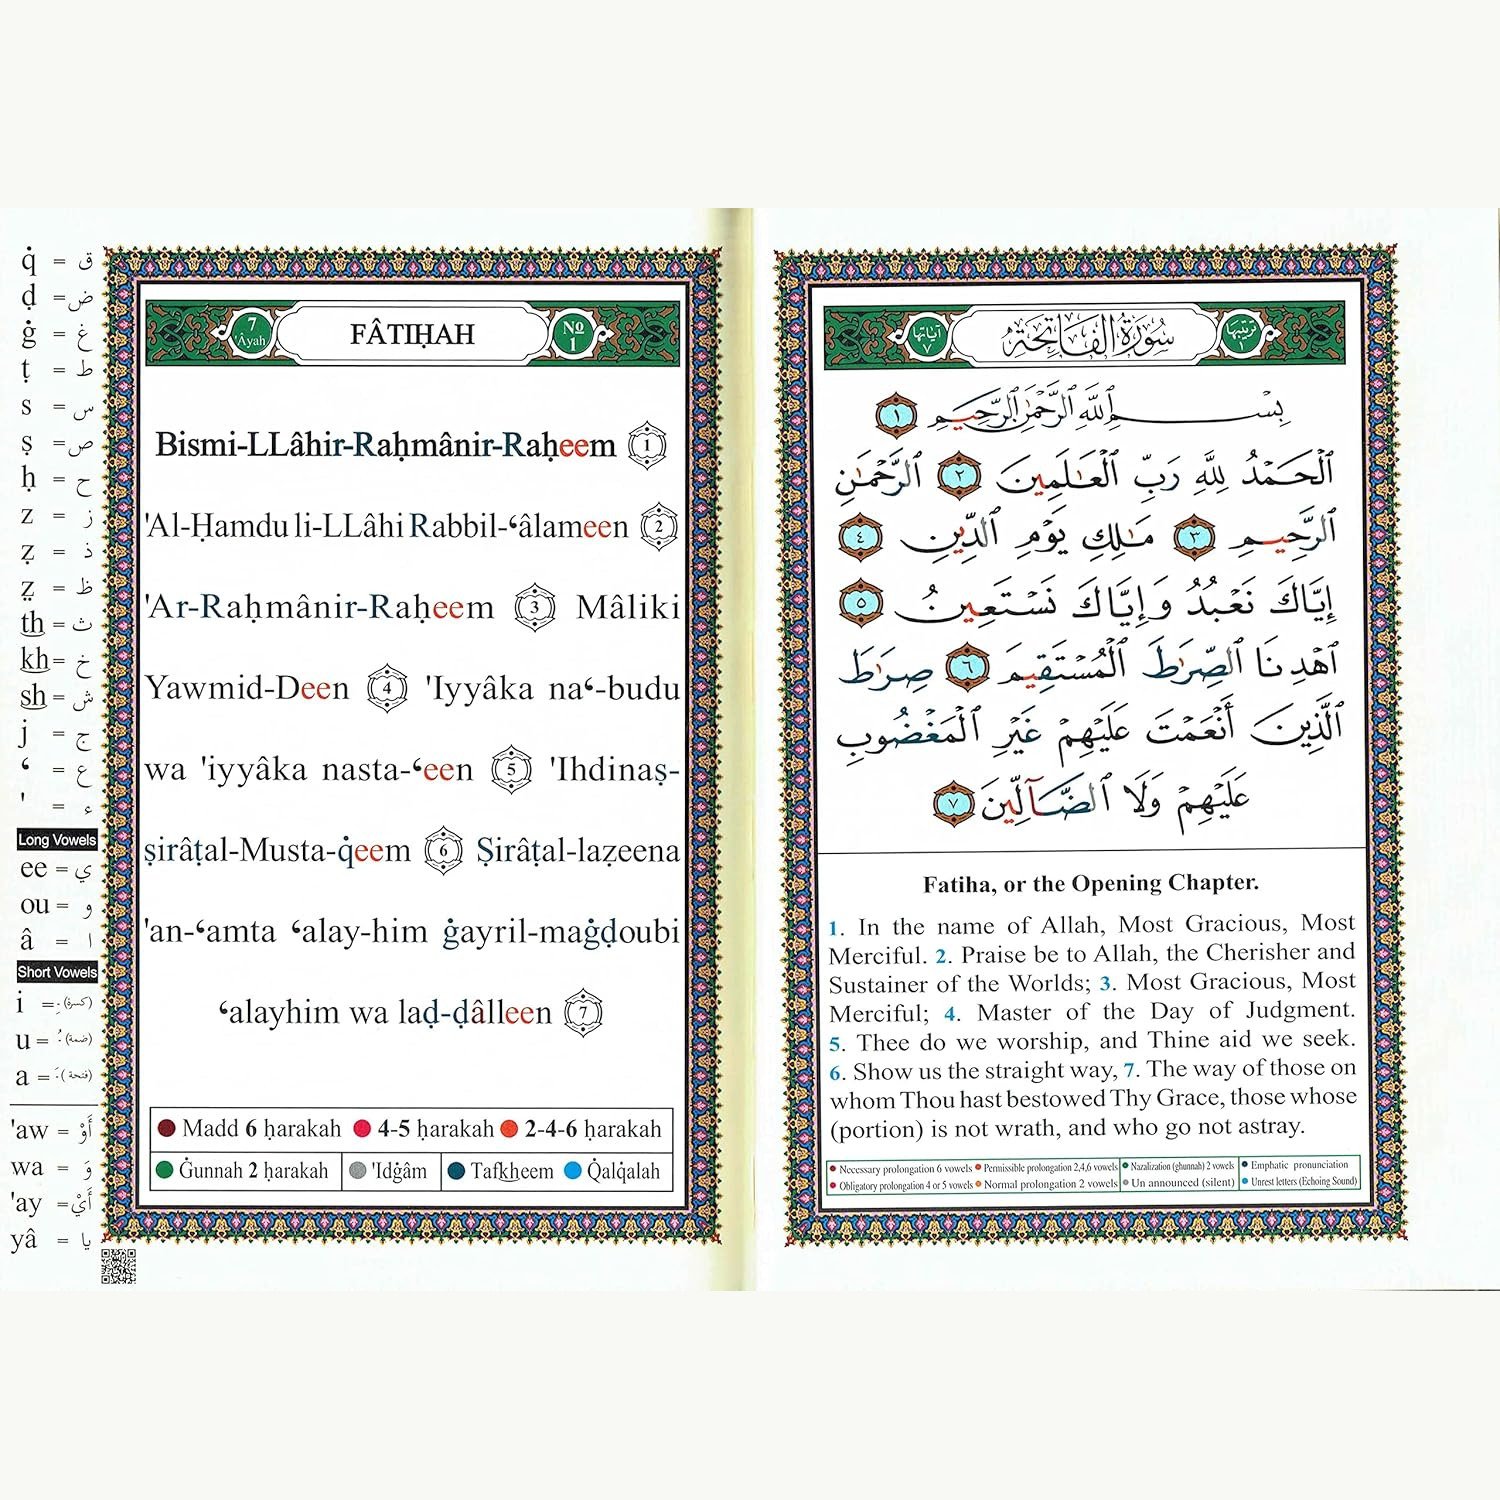 q̇ = ق
ḍ = ض
ġ = غ
ṭ = ط
s = س
ṣ = ص
ḥ = ح
z = ز
ẓ = ذ
ẓ̤ = ظ
th = ث
kh = خ
sh = ش
j = ج
‘ = ع
' = ء
Long Vowels
ee = ي
ou = و
â = ا
Short Vowels
i = ـِ (كسرة)
u = ـُ (ضمة)
a = ـَ (فتحة)
'aw = أَوْ
wa = وَ
'ay = أَيْ
yâ = يا
7 'Âyah
FÂTIḤAH
№ 1
Bismi-LLâhir-Raḥmânir-Raḥeem 1
'Al-Ḥamdu li-LLâhi Rabbil-‘âlameen 2
'Ar-Raḥmânir-Raḥeem 3 Mâliki
Yawmid-Deen 4 'Iyyâka na‘-budu
wa 'iyyâka nasta-‘een 5 'Ihdinaṣ-
ṣirâṭal-Musta-q̇eem 6 Ṣirâṭal-laẓeena
'an-‘amta ‘alay-him ġayril-maġḍoubi
‘alayhim wa laḍ-ḍâlleen 7
Madd 6 ḥarakah 4-5 ḥarakah 2-4-6 ḥarakah
Ġunnah 2 ḥarakah 'Idġâm Tafkheem Q̇alq̇alah
ترتيبها ١
سُورَةُ الفَاتِحَةِ
آياتها ٧
بِسْمِ ٱللَّهِ ٱلرَّحْمَٰنِ ٱلرَّحِيمِ ١
ٱلْحَمْدُ لِلَّهِ رَبِّ ٱلْعَٰلَمِينَ ٢ ٱلرَّحْمَٰنِ
ٱلرَّحِيمِ ٣ مَٰلِكِ يَوْمِ ٱلدِّينِ ٤
إِيَّاكَ نَعْبُدُ وَإِيَّاكَ نَسْتَعِينُ ٥
ٱهْدِنَا ٱلصِّرَٰطَ ٱلْمُسْتَقِيمَ ٦ صِرَٰطَ
ٱلَّذِينَ أَنْعَمْتَ عَلَيْهِمْ غَيْرِ ٱلْمَغْضُوبِ
عَلَيْهِمْ وَلَا ٱلضَّآلِّينَ ٧
Fatiha, or the Opening Chapter.
1. In the name of Allah, Most Gracious, Most
Merciful. 2. Praise be to Allah, the Cherisher and
Sustainer of the Worlds; 3. Most Gracious, Most
Merciful; 4. Master of the Day of Judgment.
5. Thee do we worship, and Thine aid we seek.
6. Show us the straight way, 7. The way of those on
whom Thou hast bestowed Thy Grace, those whose
(portion) is not wrath, and who go not astray.
Necessary prolongation 6 vowels Permissible prolongation 2,4,6 vowels Nazalization (ghunnah) 2 vowels Emphatic pronunciation
Obligatory prolongation 4 or 5 vowels Normal prolongation 2 vowels Un announced (silent) Unrest letters (Echoing Sound)